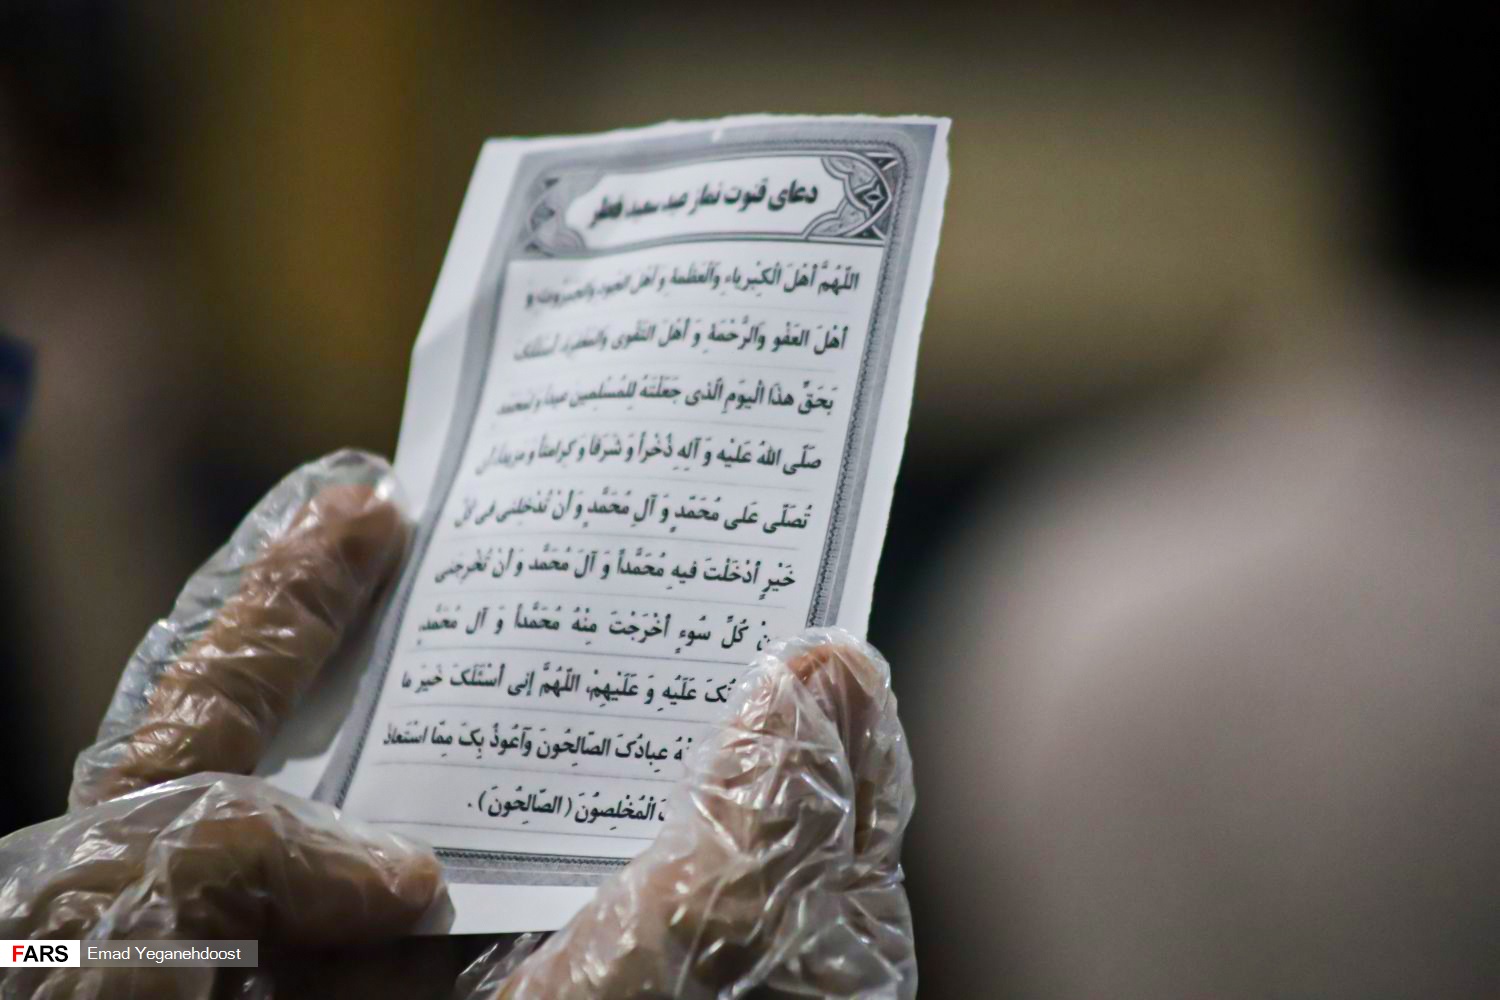 دعای قنوت نماز عید سعید فطر
اللّهُمَّ أهْلَ الْكِبْرياءِ وَالْعَظَمَةِ وَ أهْلَ الجُودِ وَالجَبَرُوتِ وَ
أهْلَ العَفْوِ وَالرَّحْمَةِ وَ أهْلَ التَّقْوى وَالمَغْفِرَةِ أسْئَلُکَ
بَحَقِّ هذَا الْیَومِ الَّذی جَعَلْتَهُ لِلْمُسْلِمینَ عیداً وَ لِمُحَمَّدٍ
صَلَّی اللهُ عَلَیْهِ وَ آلِهِ ذُخْراً وَ شَرَفاً وَ کَرامَتاً وَ مَزیداً أن
تُصَلّی عَلی مُحَمّدٍ وَ آلِ مُحَمَّدٍ وَ أنْ تُدْخِلنی فی کُلِّ
خَیْرٍ أدْخَلْتَ فیهِ مُحَمَّداً وَ آلَ مُحَمَّد وَ أنْ تُخْرِجَنی
کُلِّ سُوءٍ أخْرَجْتَ مِنْهُ مُحَمَّداً وَ آل مُحَمَّدٍ،
عَلَیْهِ وَ عَلَیْهِمْ، اللّهُمَّ إنی أسْئَلُکَ خَیرَ ما
عِبادُکَ الصّالِحُونَ وَآعُوذُ بِکَ مِمّا اسْتَعاذَ
الْمُخْلِصوُنَ (الصّالِحُونَ).
FARS Emad Yeganehdoost